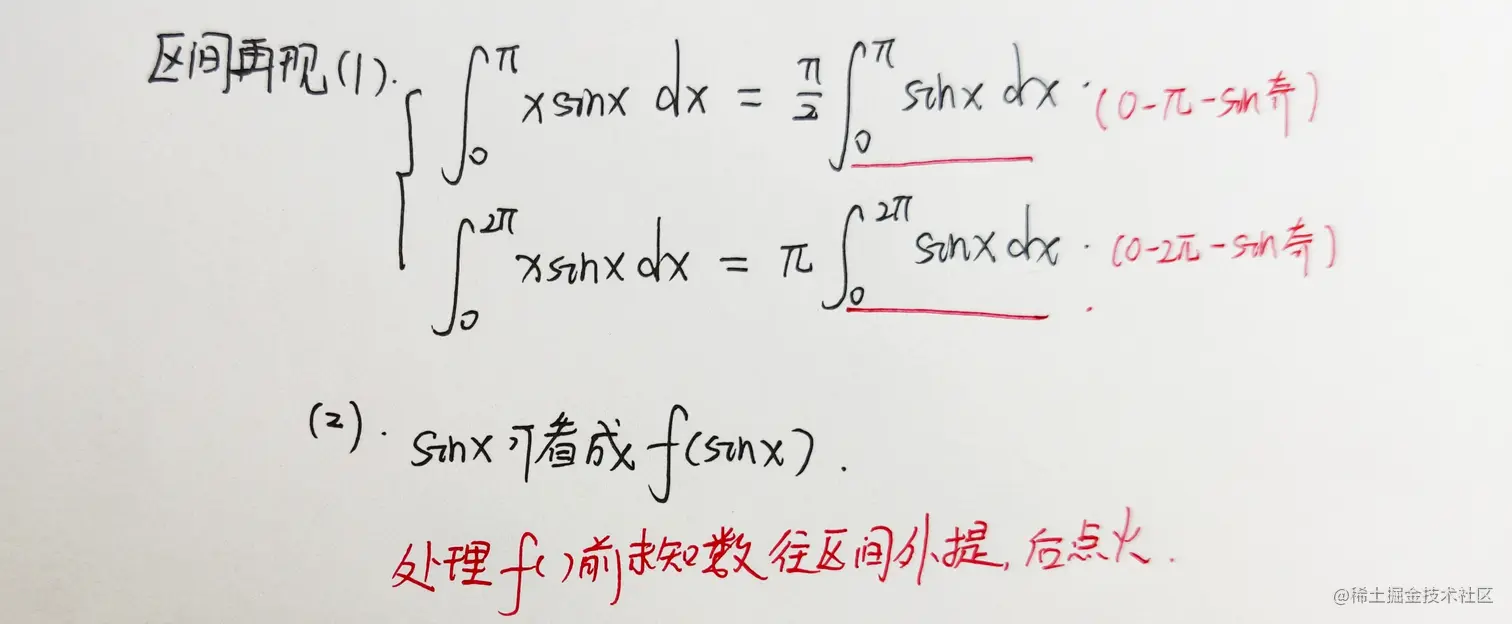 区间再现(1). ∫₀^π x sinx dx = π/2 ∫₀^π sinx dx · (0-π-sin奇)
∫₀^2π x sinx dx = π ∫₀^2π sinx dx · (0-2π-sin奇)
(2). sinx 可看成 f(sinx).
处理f( )前未知数往区间外提, 后点火.
@稀土掘金技术社区